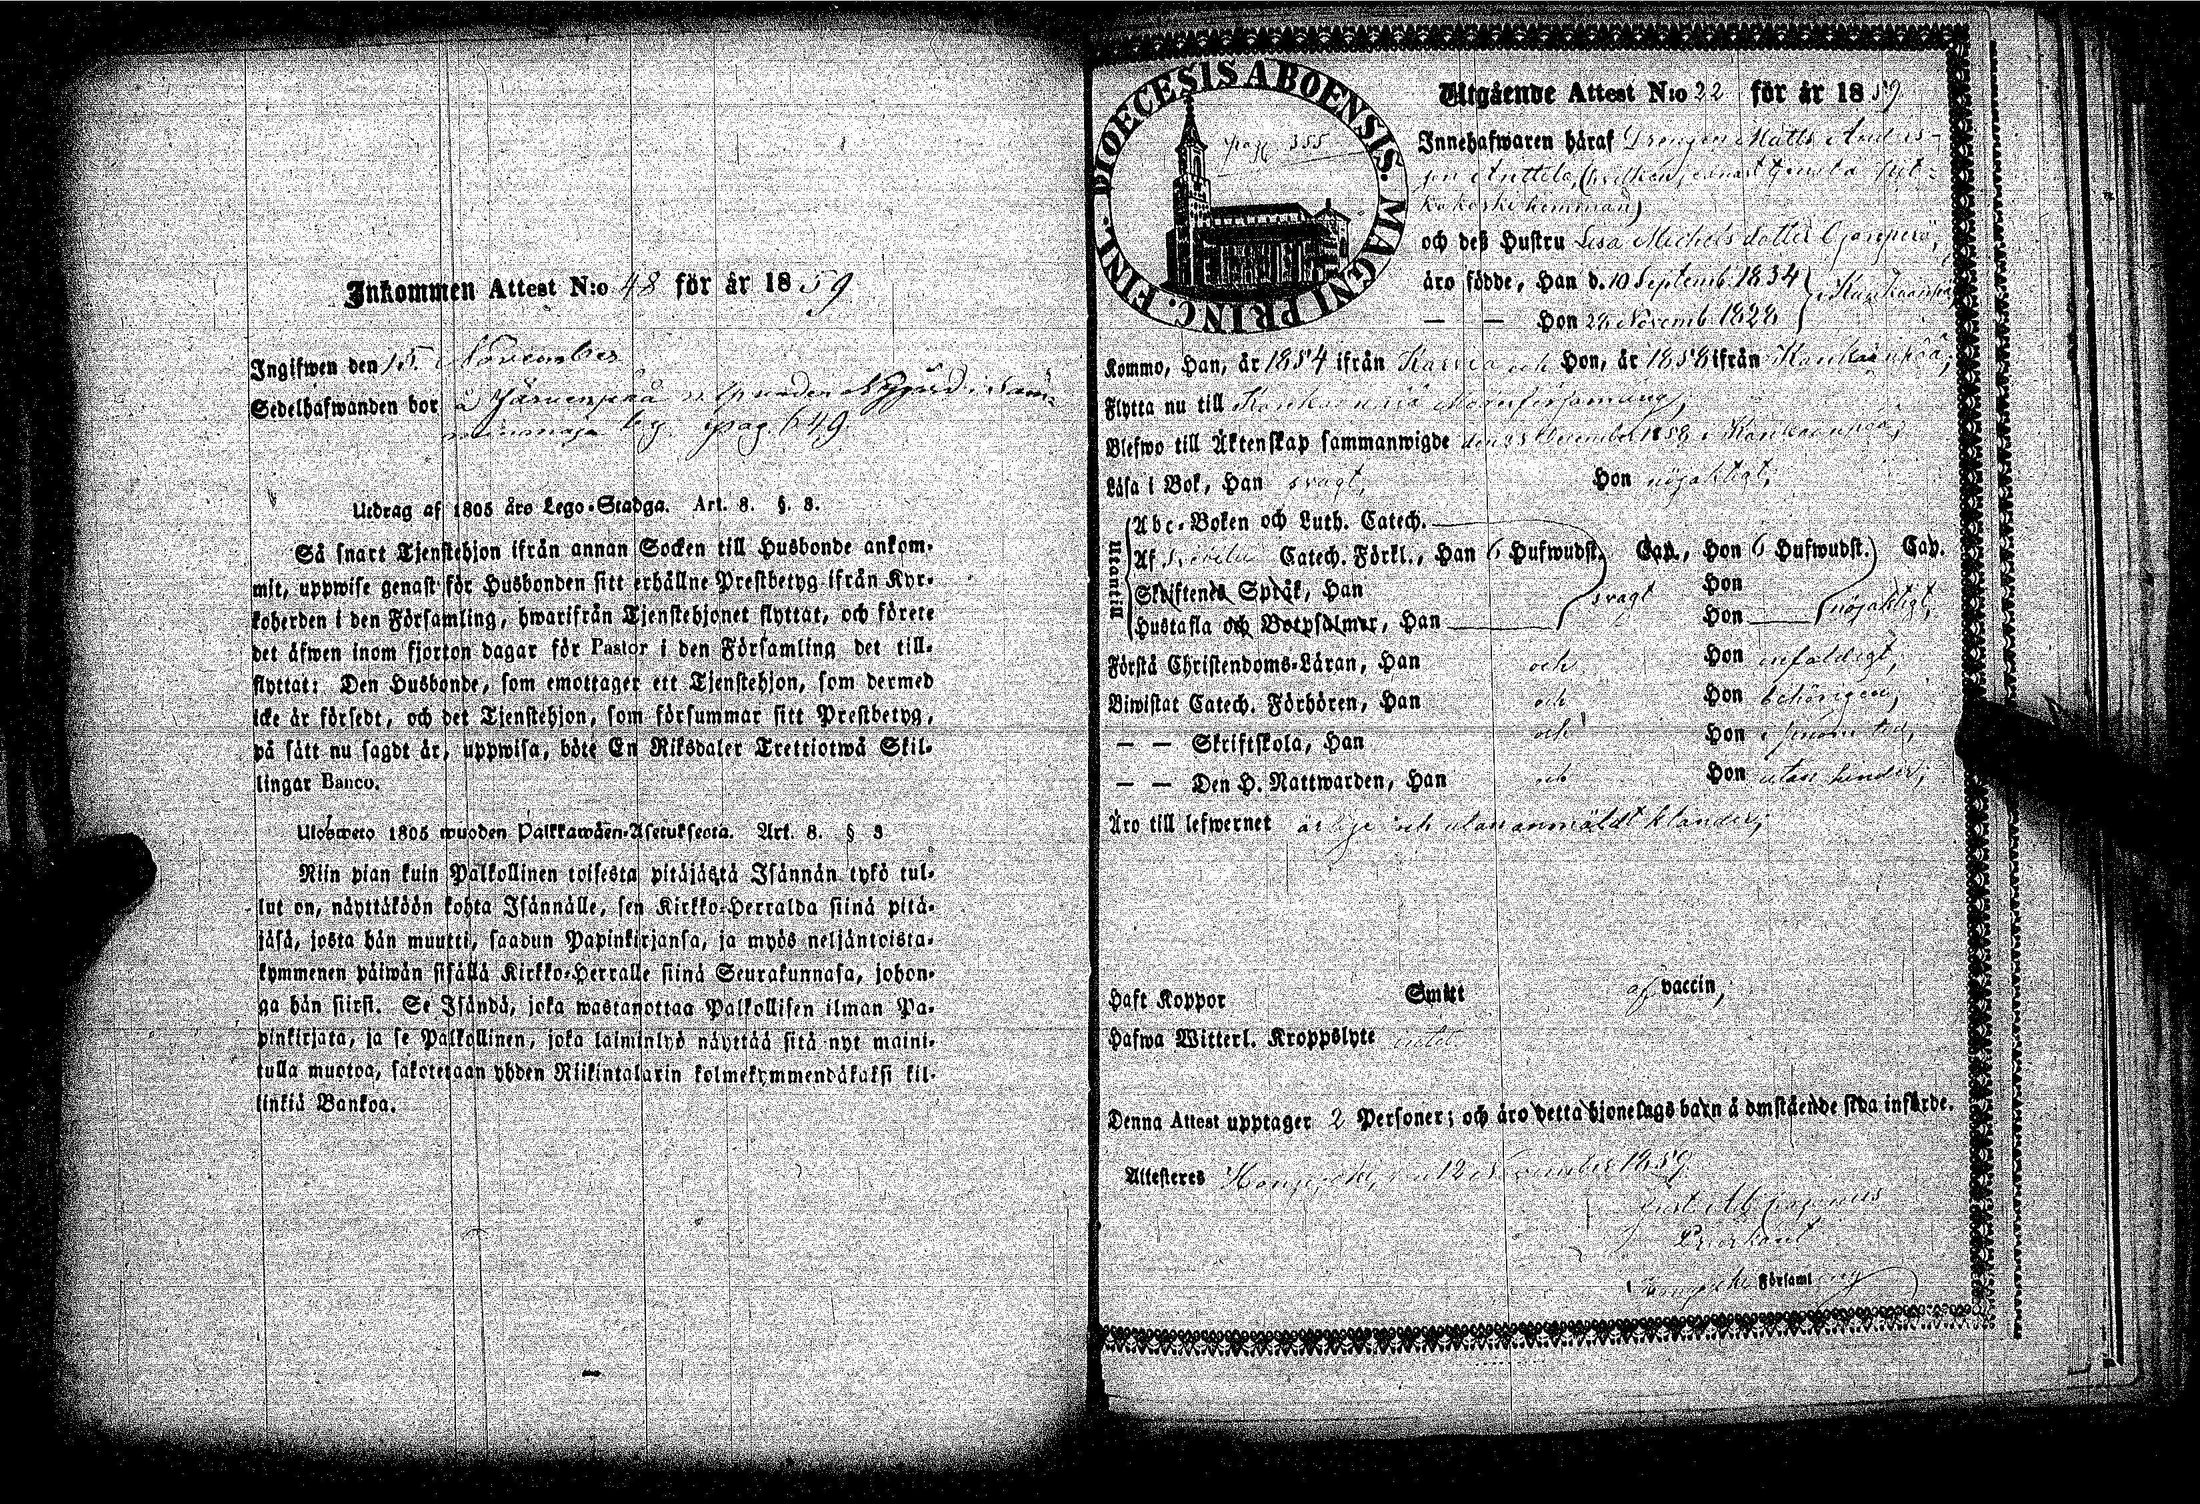 Inkommen Attest N:o 48 för år 1859
Ingifwen den 15. November
Sedelhafwanden bor å Järvenpää
by pag. 649.
Utdrag af 1805 års Lego-Stadga. Art. 8. §. 8.
Så snart Tjenstehjon ifrån annan Socken till Husbonde ankom-
mit, uppwise genast för Husbonden sitt erhållne Prestbetyg ifrån Kyr-
koherden i den Församling, hwarifrån Tjenstehjonet flyttat, och förete
det äfwen inom fjorton dagar för Pastor i den Församling det till-
flyttat: Den Husbonde, som emottager ett Tjenstehjon, som dermed
icke är försedt, och det Tjenstehjon, som försummar sitt Prestbetyg,
på sätt nu sagdt är, uppwisa, böte En Riksdaler Trettiotwå Skil-
lingar Banco.
Ulosweto 1805 wuoden Palkkawäen-Asetuksesta. Art. 8. § 8
Niin pian kuin Palkollinen toisesta pitäjästä Isännän tykö tul-
lut on, näyttäköön kohta Isännälle, sen Kirkko-Herralda siinä pitä-
jäsä, josta hän muutti, saadun Papinkirjansa, ja myös neljäntoista-
kymmenen päiwän sisällä Kirkko-Herralle siinä Seurakunnasa, johon-
ga hän siirsi. Se Isändä, joka wastanottaa Palkollisen ilman Pa-
pinkirjata, ja se Palkollinen, joka laiminlyö näyttää sitä nyt maini-
tulla muotoa, sakotetaan yhden Riikintalarin kolmekymmendäkaksi kil-
linkiä Bankoa.
FINL. DIOECESIS ABOENSIS. MAGNI PRINC.
pag. 355
Utgående Attest N:o 22 för år 1859
Innehafwaren häraf Drengen Matts Anders-
son Anttila,
hemman)
och deß Hustru Lisa Michelsdotter
äro födde, Han d. 10 Septemb. 1834
— — Hon 28 Novemb. 1828
Kommo, Han, år 1854 ifrån och Hon, år 1858 ifrån
Flytta nu till
Blefwo till Äktenskap sammanwigde den December 1858 i
Läsa i Bok, Han svagt, Hon nöjaktigt,
Utantill
Abc-Boken och Luth. Catech.
Af Catech. Förkl., Han 6 Hufwudst. Cap., Hon 6 Hufwudst. Cap.
Skriftenes Språk, Han svagt Hon
Hustafla och Botpsalmer, Han Hon nöjaktigt,
Förstå Christendoms-Läran, Han och Hon enfaldigt,
Biwistat Catech. Förhören, Han och Hon behörigen,
— — Skriftskola, Han och Hon i sinom tid,
— — Den H. Nattwarden, Han och Hon utan hinder;
Äro till lefwernet ärlige och utan anmäldt klander;
Haft Koppor Smitt af vaccin,
Hafwa Witterl. Kroppslyte intet
Denna Attest upptager 2 Personer; och äro detta hjonelags barn å omstående sida införde.
Attesteres den 12 November 1859
Församling